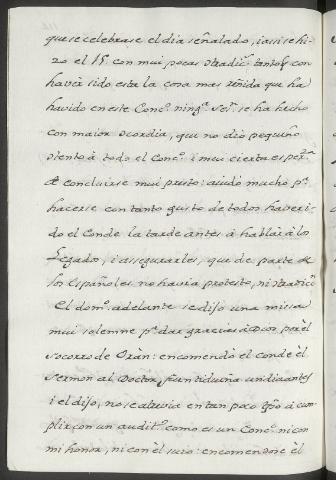 que se celebrase el dia señalado, i assi se hi-
zo el 15. con mui pocas contradic.s tantas con
haver sido esta la cosa mas reñida que ha
havido en este Conc.o ning.a Ses.n se ha hecho
con maior concordia, que no dio pequeño
contento à todo el Conc.o i mui cierta esper.za
de concluirse mui presto: aiudò mucho p.a
hacerse con tanto gusto de todos haver i-
do el Conde la tarde antes à hablar à los
Legados, i assegurarles, que de parte de
los Españoles no havria protesto, ni contradic.n
El dom.o adelante se dijo una missa
mui solemne p.a dar gracias à Dios por el
socorro de Oràn: encomendò el Conde el
sermon al Doctor Fuentidueña un dia antes
i el dijo, no se atrevia en tan poco tpõ à cum-
plir con un audit.o como es un Conc.o ni con
mi honor, ni con el suio: encomendose el